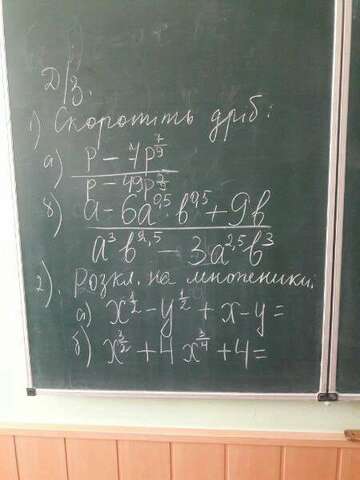 Д/з.
1) Скоротить дріб:
а) p - 7p^{7/9}
p - 49p^{5/9}
б) a - 6a^{0,5} b^{0,5} + 9b
a^3 b^{2,5} - 3a^{2,5} b^3
2). Розкл. на множеники.
а) x^{1/2} - y^{1/2} + x - y =
б) x^{3/2} + 4 x^{3/4} + 4 =